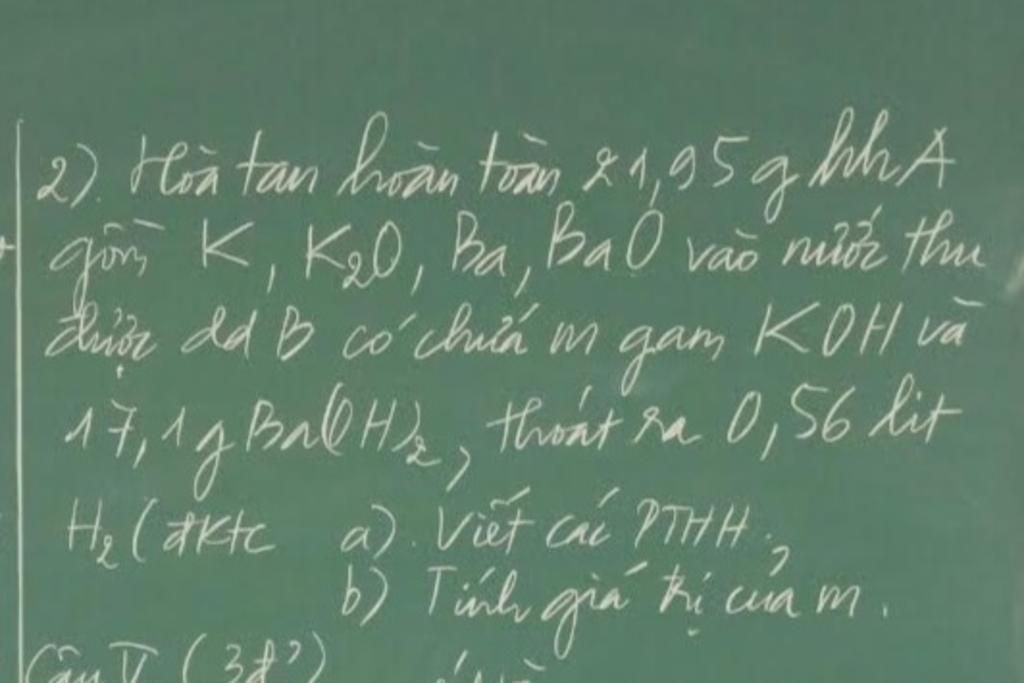 2). Hoà tan hoàn toàn 21,95 g hh A
gồm K, K₂O, Ba, BaO vào nước thu
được dd B có chứa m gam KOH và
17,1 g Ba(OH)₂, thoát ra 0,56 lit
H₂ (đktc a). Viết các PTHH.
b) Tính giá trị của m.
Câu V (3đ)